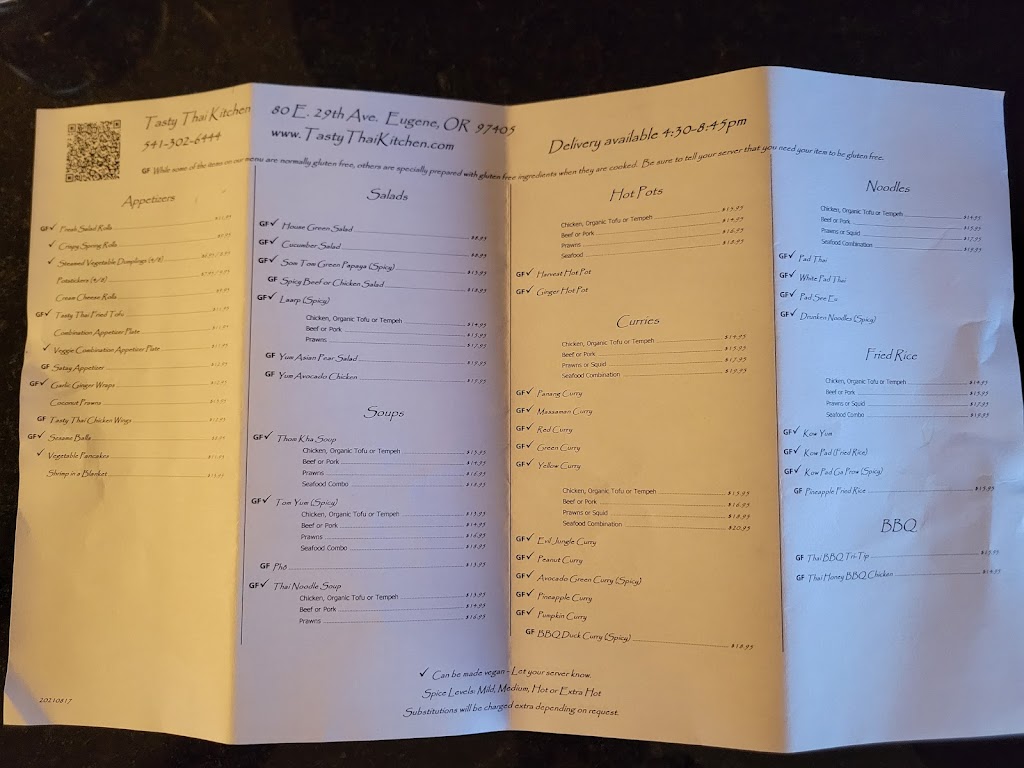 Tasty Thai Kitchen
541-302-6444
80 E. 29th Ave. Eugene, OR 97405
www.TastyThaiKitchen.com
Delivery available 4:30-8:45pm
GF While some of the items on our menu are normally gluten free, others are specially prepared with gluten free ingredients when they are cooked. Be sure to tell your server that you need your item to be gluten free.
Appetizers
GF✓ Fresh Salad Rolls
✓ Crispy Spring Rolls
✓ Steamed Vegetable Dumplings (4/8)
Potstickers (4/8)
Cream Cheese Rolls
GF✓ Tasty Thai Fried Tofu
Combination Appetizer Plate
✓ Veggie Combination Appetizer Plate
GF Satay Appetizer
GF✓ Garlic Ginger Wraps
Coconut Prawns
GF Tasty Thai Chicken Wings
GF✓ Sesame Balls
✓ Vegetable Pancakes
Shrimp in a Blanket
20210817
Salads
GF✓ House Green Salad $8.95
GF✓ Cucumber Salad $8.95
GF✓ Som Tom Green Papaya (Spicy) $13.95
GF Spicy Beef or Chicken Salad $18.95
GF✓ Laarp (Spicy)
Chicken, Organic Tofu or Tempeh $14.95
Beef or Pork $15.95
Prawns $17.95
GF Yum Asian Pear Salad $19.95
GF Yum Avocado Chicken $19.95
Soups
GF✓ Thom Kha Soup
Chicken, Organic Tofu or Tempeh $13.95
Beef or Pork $14.95
Prawns $16.95
Seafood Combo $18.95
GF✓ Tom Yum (Spicy)
Chicken, Organic Tofu or Tempeh $13.95
Beef or Pork $14.95
Prawns $16.95
Seafood Combo $18.95
GF Pho $13.95
GF✓ Thai Noodle Soup
Chicken, Organic Tofu or Tempeh $13.95
Beef or Pork $14.95
Prawns $16.95
Hot Pots
Chicken, Organic Tofu or Tempeh $13.95
Beef or Pork $14.95
Prawns $16.95
Seafood $18.95
GF✓ Harvest Hot Pot
GF✓ Ginger Hot Pot
Curries
Chicken, Organic Tofu or Tempeh $14.95
Beef or Pork $15.95
Prawns or Squid $17.95
Seafood Combination $19.95
GF✓ Panang Curry
GF✓ Massaman Curry
GF✓ Red Curry
GF✓ Green Curry
GF✓ Yellow Curry
Chicken, Organic Tofu or Tempeh $15.95
Beef or Pork $16.95
Prawns or Squid $18.95
Seafood Combination $20.95
GF✓ Evil Jungle Curry
GF✓ Peanut Curry
GF✓ Avocado Green Curry (Spicy)
GF✓ Pineapple Curry
GF✓ Pumpkin Curry
GF BBQ Duck Curry (Spicy) $18.95
Noodles
Chicken, Organic Tofu or Tempeh $14.95
Beef or Pork $15.95
Prawns or Squid $17.95
Seafood Combination $19.95
GF✓ Pad Thai
GF✓ White Pad Thai
GF✓ Pad See Ew
GF✓ Drunken Noodles (Spicy)
Fried Rice
Chicken, Organic Tofu or Tempeh $14.95
Beef or Pork $15.95
Prawns or Squid $17.95
Seafood Combo $19.95
GF✓ Kow Yum
GF✓ Kow Pad (Fried Rice)
GF✓ Kow Pad Ga Prow (Spicy)
GF Pineapple Fried Rice $15.95
BBQ
GF Thai BBQ Tri-Tip
GF Thai Honey BBQ Chicken $14.95
✓ Can be made vegan - Let your server know.
Spice Levels: Mild, Medium, Hot or Extra Hot
Substitutions will be charged extra depending on request.